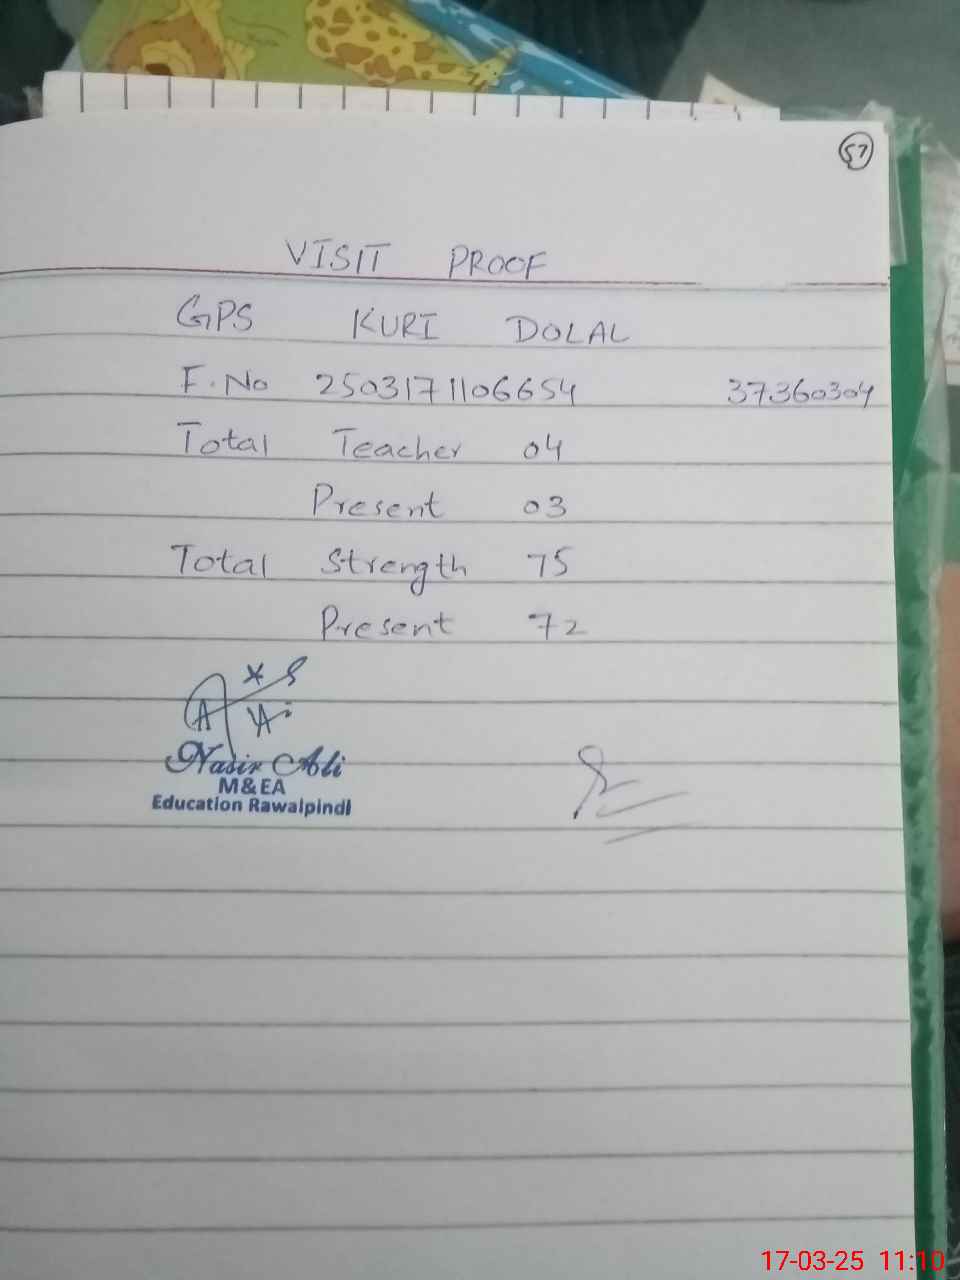 57
VISIT PROOF
GPS KURI DOLAL
F.No 2503171106654 37360304
Total Teacher 04
Present 03
Total Strength 75
Present 72
Nasir Ali
M&EA
Education Rawalpindi
17-03-25 11:10